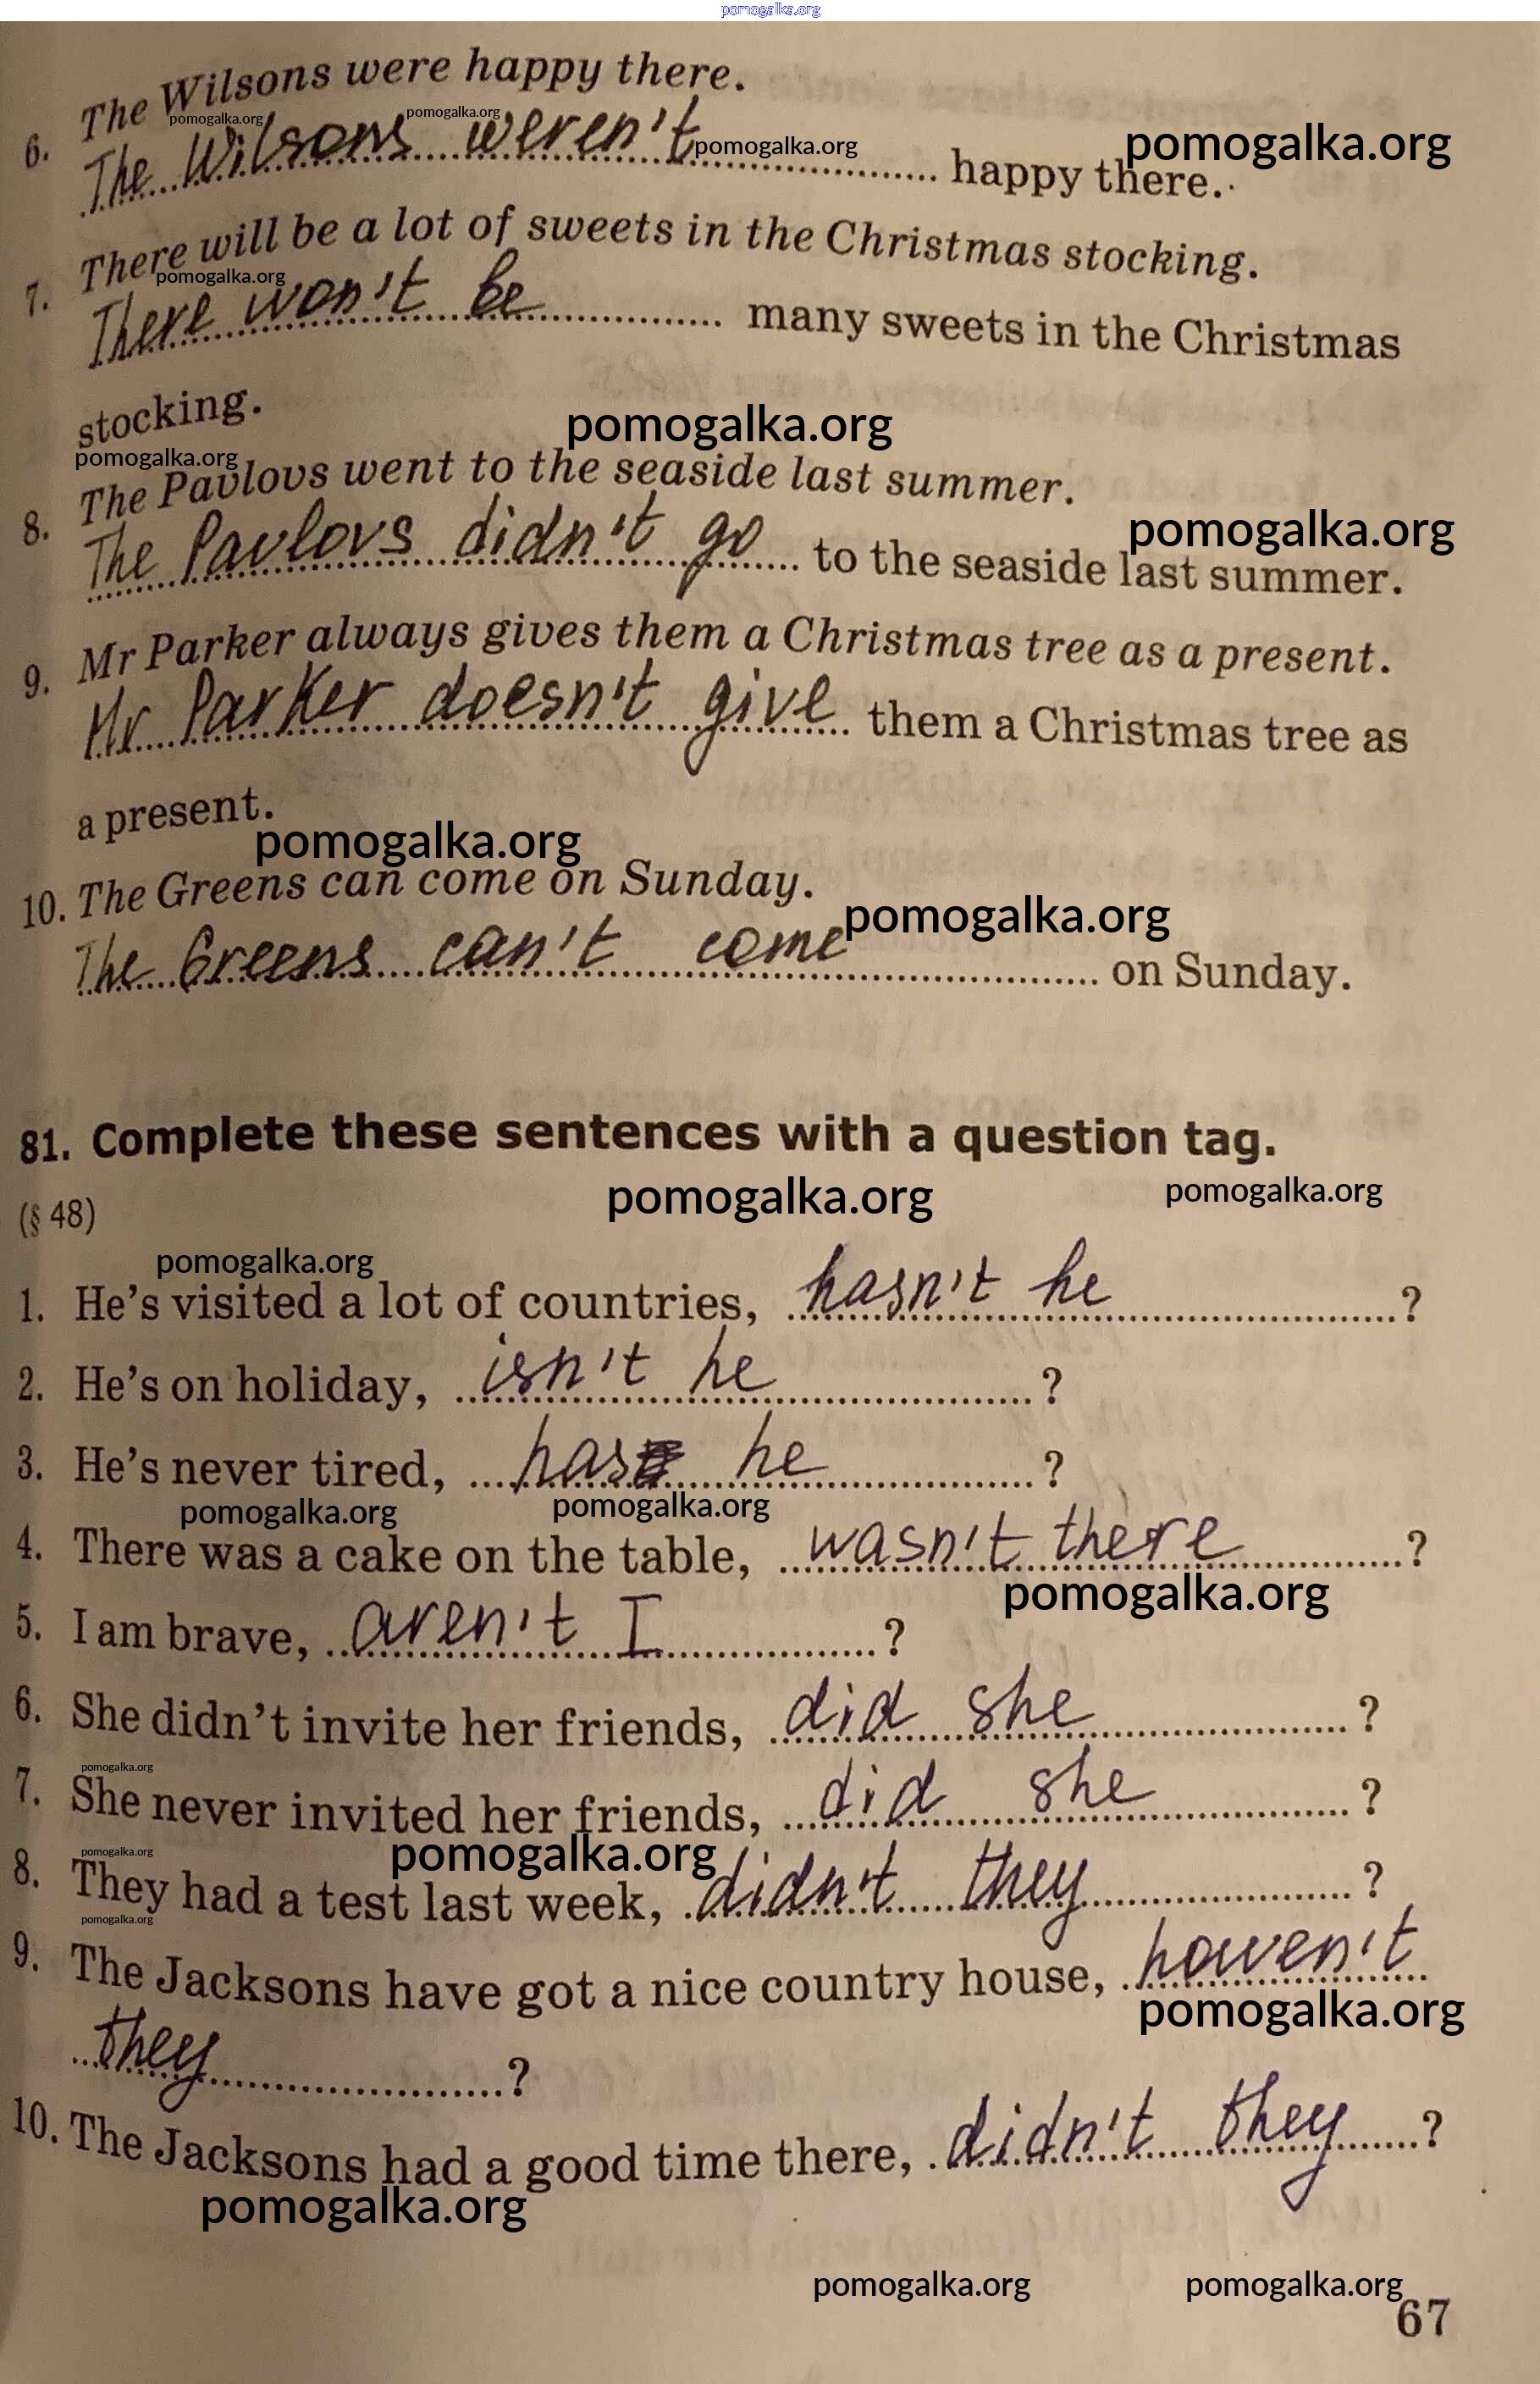 pomogalka.org
The Wilsons were happy there.
pomogalka.org
pomogalka.org
6. The Wilsons weren't ........ happy there.
pomogalka.org
pomogalka.org
There will be a lot of sweets in the Christmas stocking.
pomogalka.org
7. There won't be ........ many sweets in the Christmas
stocking.
pomogalka.org
pomogalka.org
The Pavlovs went to the seaside last summer.
pomogalka.org
8. The Pavlovs didn't go ... to the seaside last summer.
Mr Parker always gives them a Christmas tree as a present.
9. Mr Parker doesn't give ... them a Christmas tree as
a present.
pomogalka.org
10. The Greens can come on Sunday.
pomogalka.org
The Greens can't come ........ on Sunday.
81. Complete these sentences with a question tag.
pomogalka.org
pomogalka.org
(§ 48)
pomogalka.org
1. He's visited a lot of countries, hasn't he ........?
2. He's on holiday, isn't he ........?
3. He's never tired, has he ........?
pomogalka.org
pomogalka.org
4. There was a cake on the table, wasn't there ........?
pomogalka.org
5. I am brave, aren't I ........?
6. She didn't invite her friends, did she ........?
pomogalka.org
7. She never invited her friends, did she ........?
pomogalka.org
pomogalka.org
8. They had a test last week, didn't they ........?
pomogalka.org
9. The Jacksons have got a nice country house, haven't
pomogalka.org
they ........?
10. The Jacksons had a good time there, didn't they ........?
pomogalka.org
pomogalka.org
pomogalka.org
67